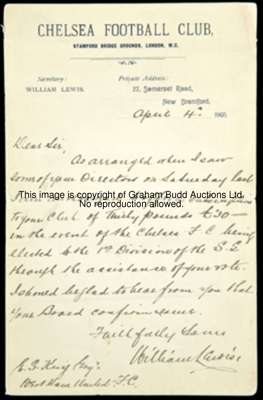 CHELSEA FOOTBALL CLUB,
STAMFORD BRIDGE GROUNDS, LONDON, W.C.
Secretary:
WILLIAM LEWIS.
Private Address:
27, Somerset Road,
New Brentford.
April 4th 1905
Dear Sir,
As arranged when I saw
some of your Directors on Saturday last
This image is copyright of Graham Budd Auctions Ltd.
No reproduction allowed.
to your Club of Thirty pounds £30 —
in the event of the Chelsea F.C. being
elected to the 1st Division of the S.L
through the assistance of your vote.
I should be glad to hear from you that
your Board confirm same.
Faithfully Yours
William Lewis
E. S. King Esq.
West Ham United F.C.